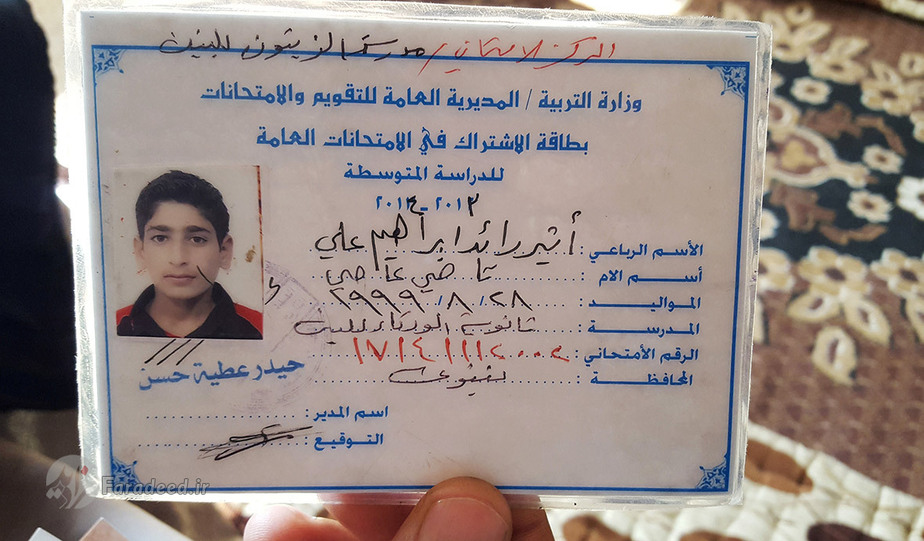 المركز الامتحاني / مدرسة الزيتون للبنين
وزارة التربية / المديرية العامة للتقويم والامتحانات
بطاقة الاشتراك في الامتحانات العامة
للدراسة المتوسطة
٢٠١٣-٢٠١٤
الأسم الرباعي : أثير رائد ابراهيم علي
أسم الام :
المواليد : ٢٨ / ٨ / ١٩٩٩
المدرسة : ثانوية للبنين
الرقم الأمتحاني :
المحافظة : نينوى
حيدر عطية حسن
اسم المدير :
التوقيع :
Faradeed.ir